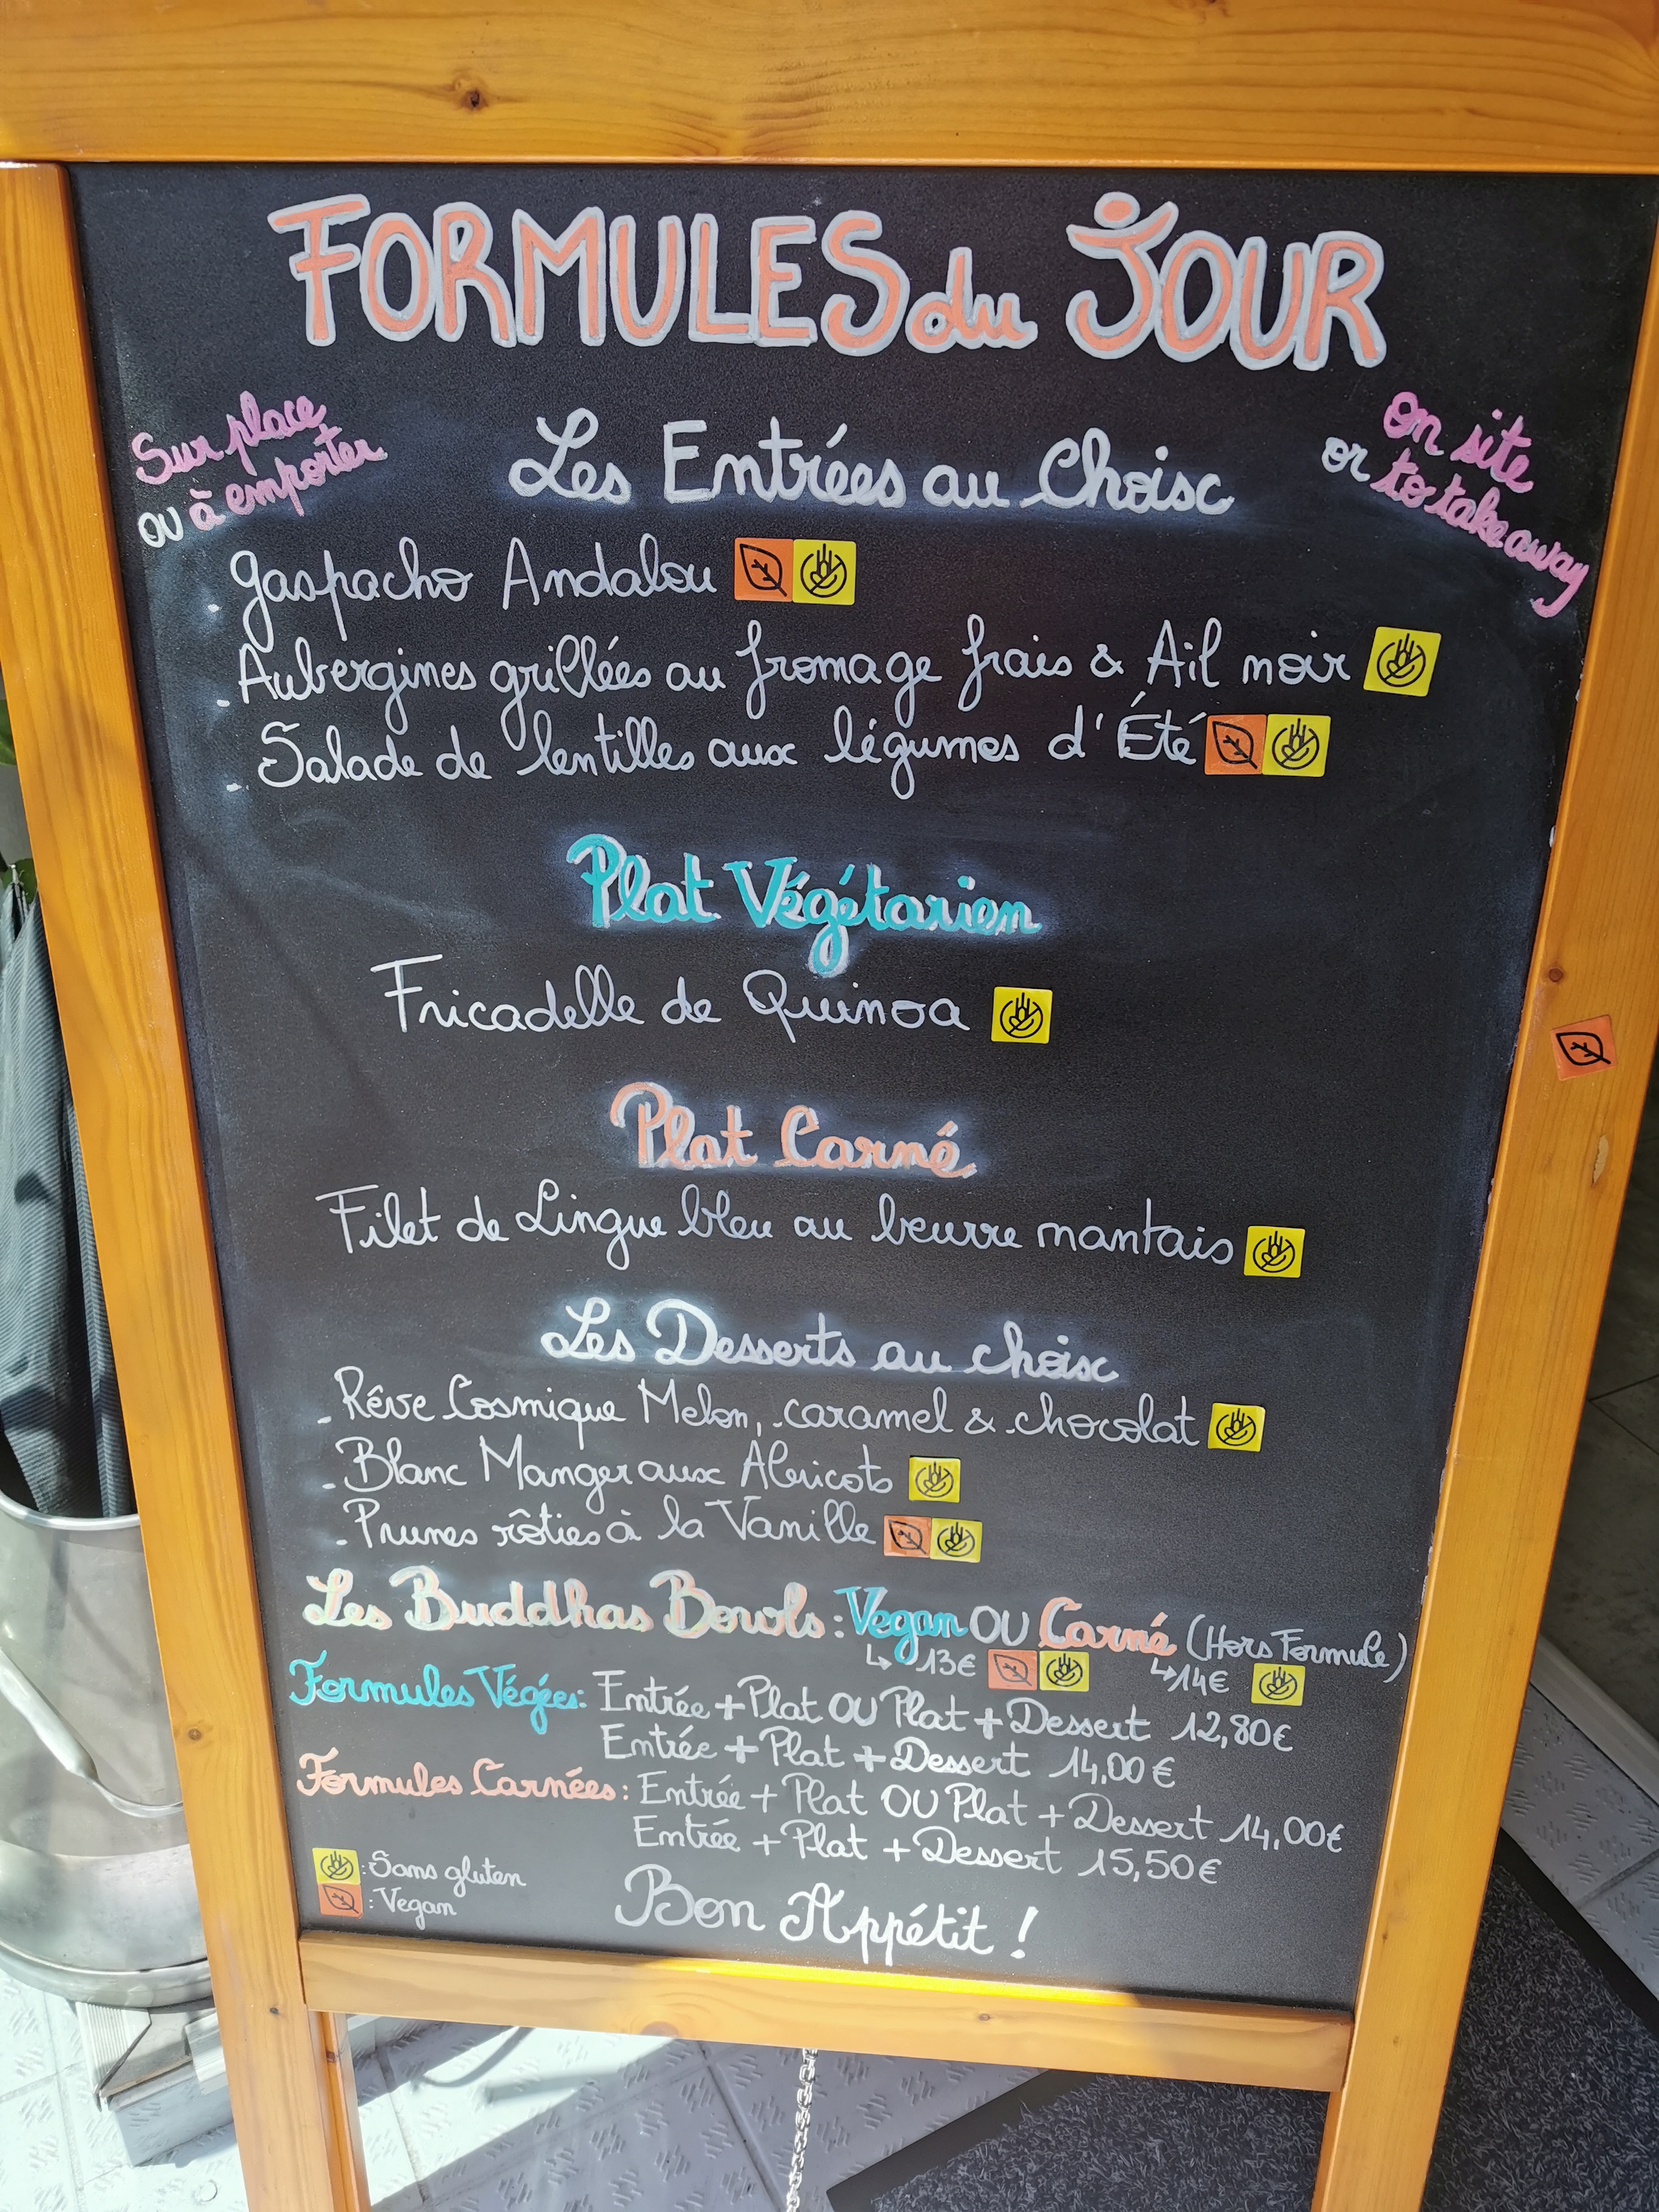 FORMULES du JOUR
Sur place
ou à emporter
on site
or to take away
Les Entrées au Choix
. Gaspacho Andalou
. Aubergines grillées au fromage frais & Ail noir
. Salade de lentilles aux légumes d'Été
Plat Végétarien
Fricadelle de Quinoa
Plat Carné
Filet de Lingue bleu au beurre nantais
Les Desserts au choix
- Rêve Cosmique Melon, caramel & chocolat
- Blanc Manger aux Abricots
- Prunes rôties à la Vanille
Les Buddhas Bowls : Vegan OU Carné (Hors Formule)
↳ 13€ ↳ 14€
Formules Végées : Entrée + Plat OU Plat + Dessert 12,80€
Entrée + Plat + Dessert 14,00€
Formules Carnées : Entrée + Plat OU Plat + Dessert 14,00€
Entrée + Plat + Dessert 15,50€
: Sans gluten
: Vegan
Bon Appétit !